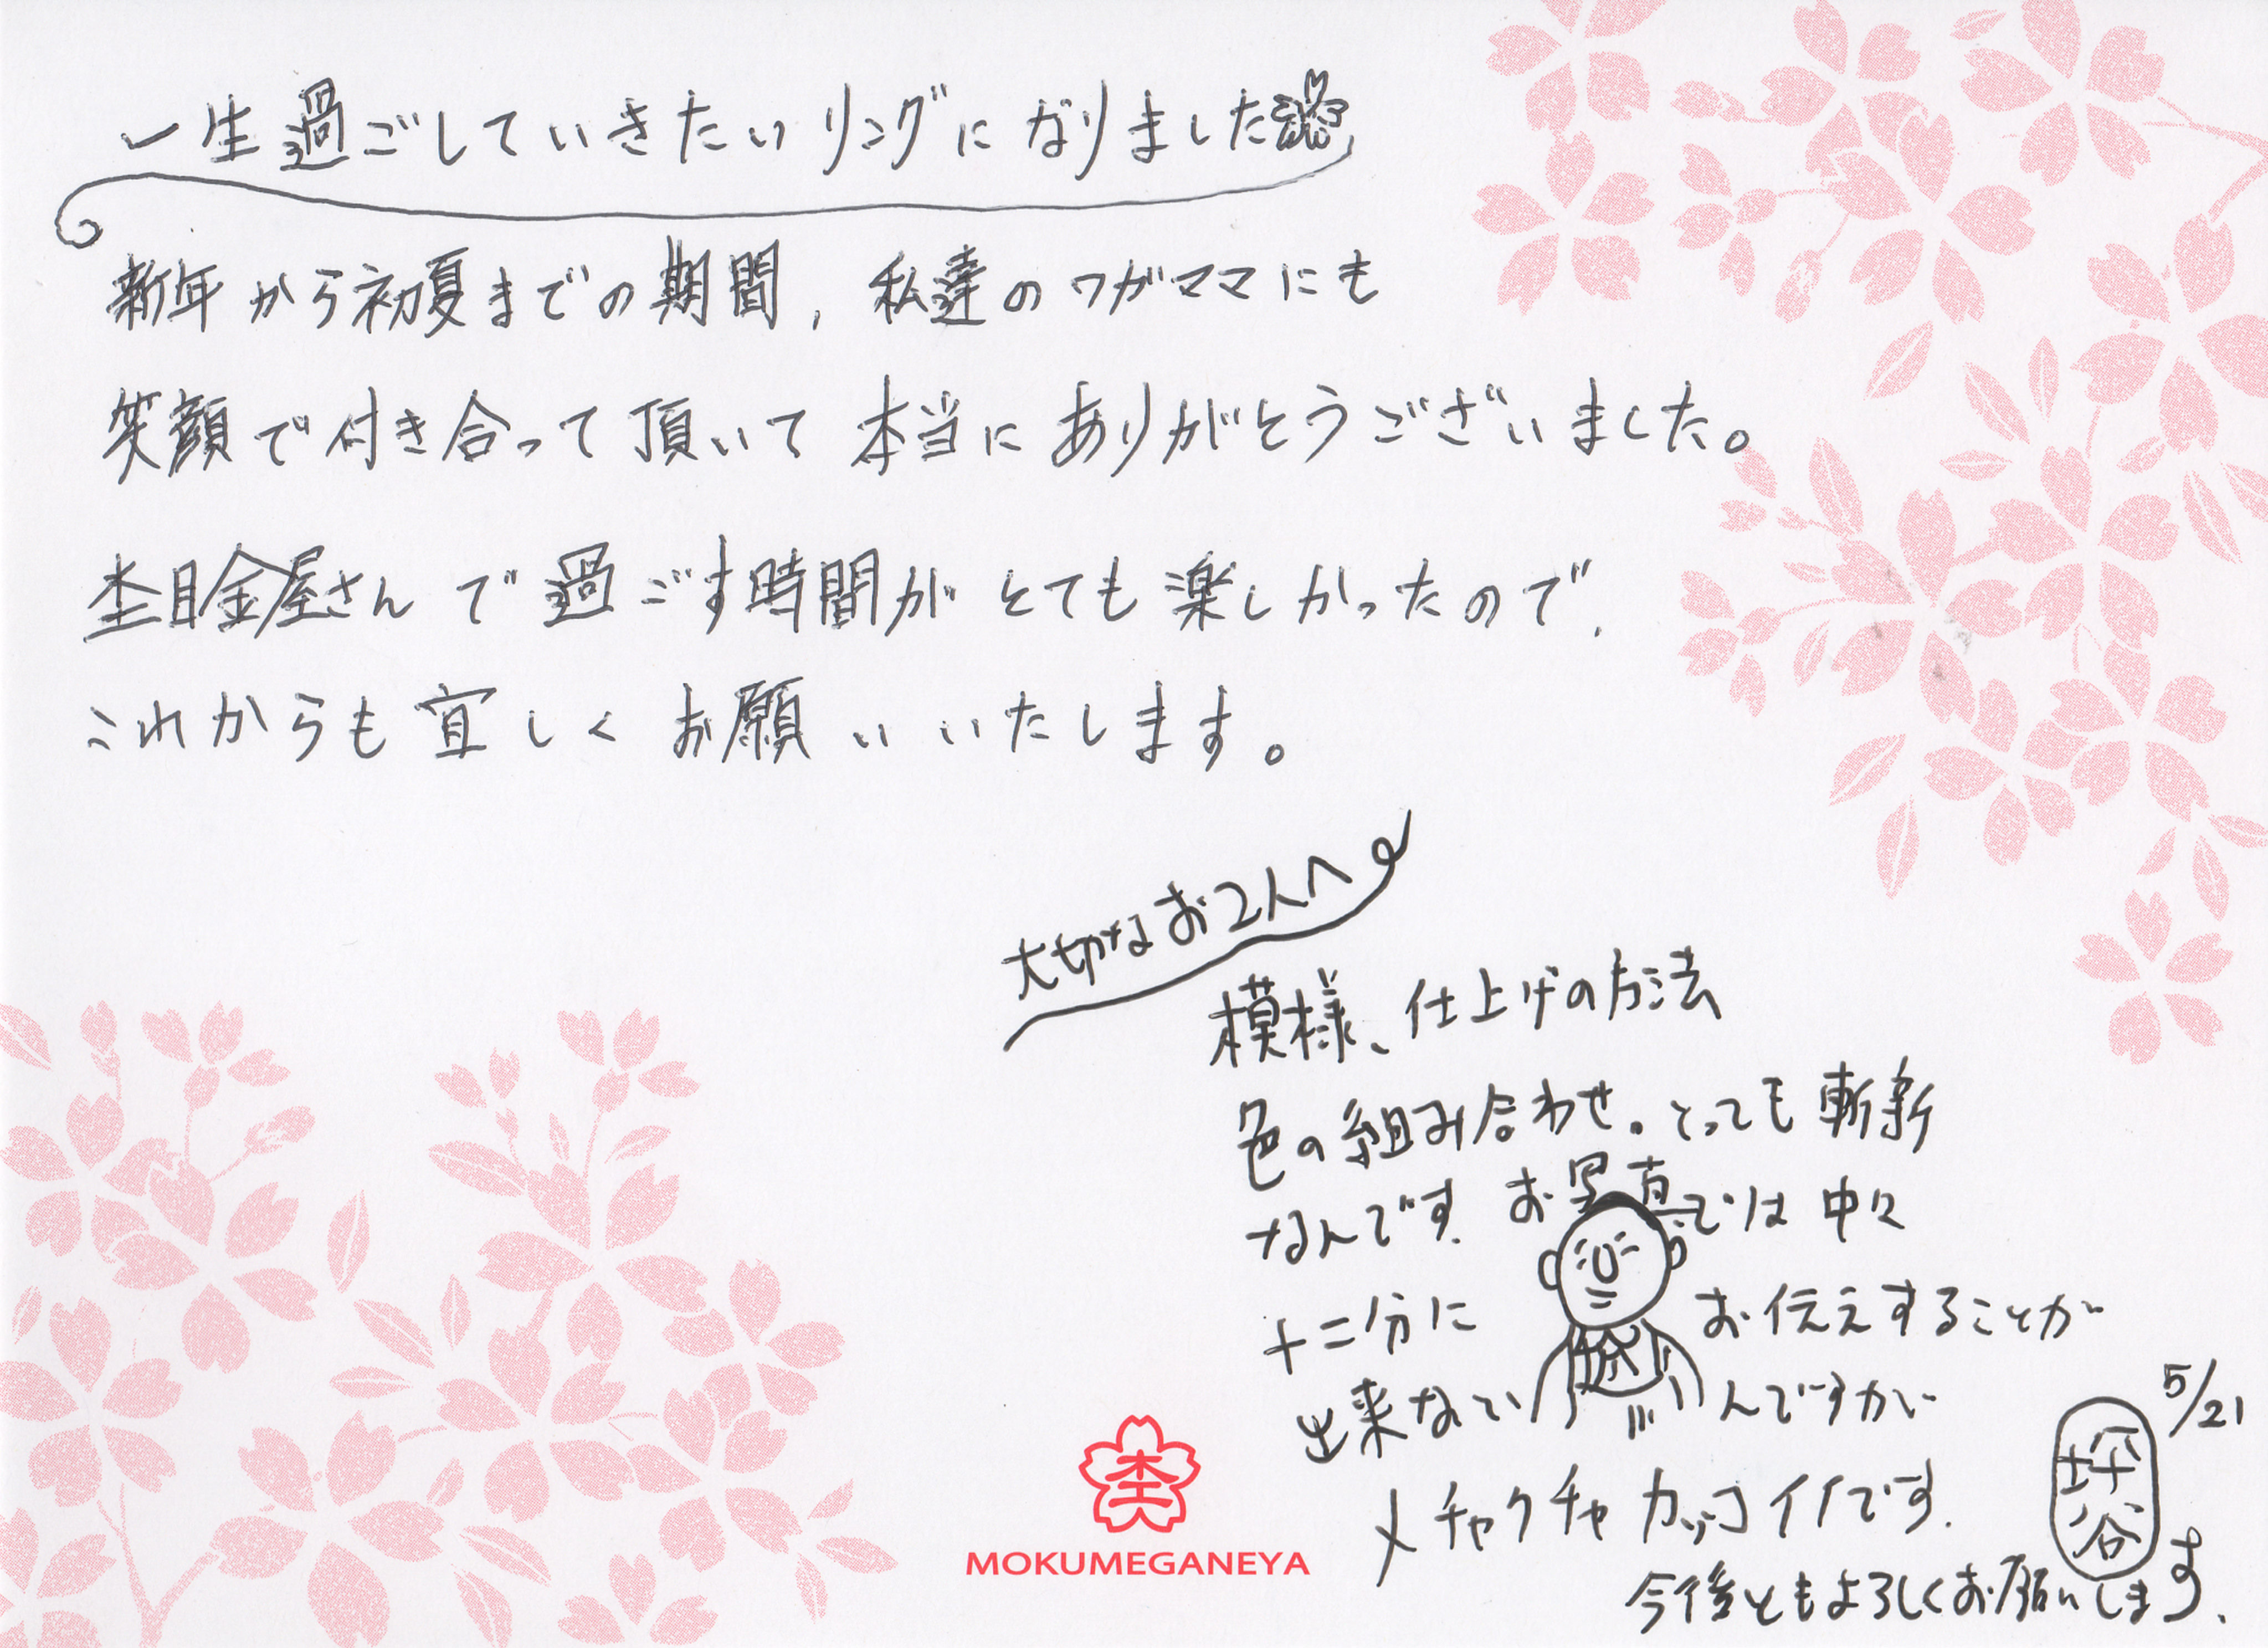 一生過ごしていきたいリングになりました
新年から初夏までの期間，私達のワガママにも
笑顔で付き合って頂いて本当にありがとうございました。
杢目金屋さんで過ごす時間がとても楽しかったので，
これからも宜しくお願いいたします。
大切なお2人へ
模様、仕上げの方法
色の組み合わせ。とっても斬新
なんです。お写真では中々
十二分にお伝えすることが
出来ないんですが
メチャクチャカッコイイです。
5/21
坪谷
今後ともよろしくお願いします。
杢
MOKUMEGANEYA